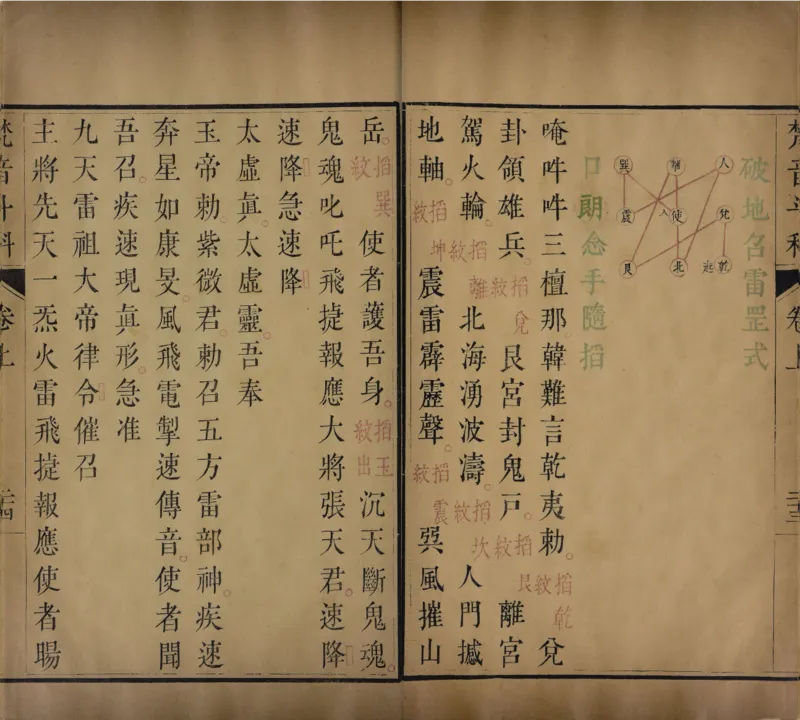 破地召雷罡式
人 韓 巽
梵 使 震
乾 北 艮
口朗念手隨掐
唵吽吽三檀那韓難言乾夷勅。掐乾紋兌
卦領雄兵。掐兌紋艮宮封鬼戶。掐艮紋離宮
駕火輪。掐離紋北海湧波濤。掐坎紋人門撼
地軸。掐坤紋震雷霹靂聲。掐震紋巽風摧山
卷上
二十三
岳。掐巽紋使者護吾身。掐玉紋出沉天斷鬼魂。
鬼魂叱吒飛捷報應大將張天君。速降
速降急速降
太虛眞。太虛靈。吾奉
玉帝勅。紫微君。勅召五方雷部神。疾速
奔星如康旻。風飛電掣速傳音。使者聞
吾召。疾速現眞形。急准
九天雷祖大帝律令催召
主將先天一炁火雷飛捷報應使者暘
梵音斗科
卷上
二十四